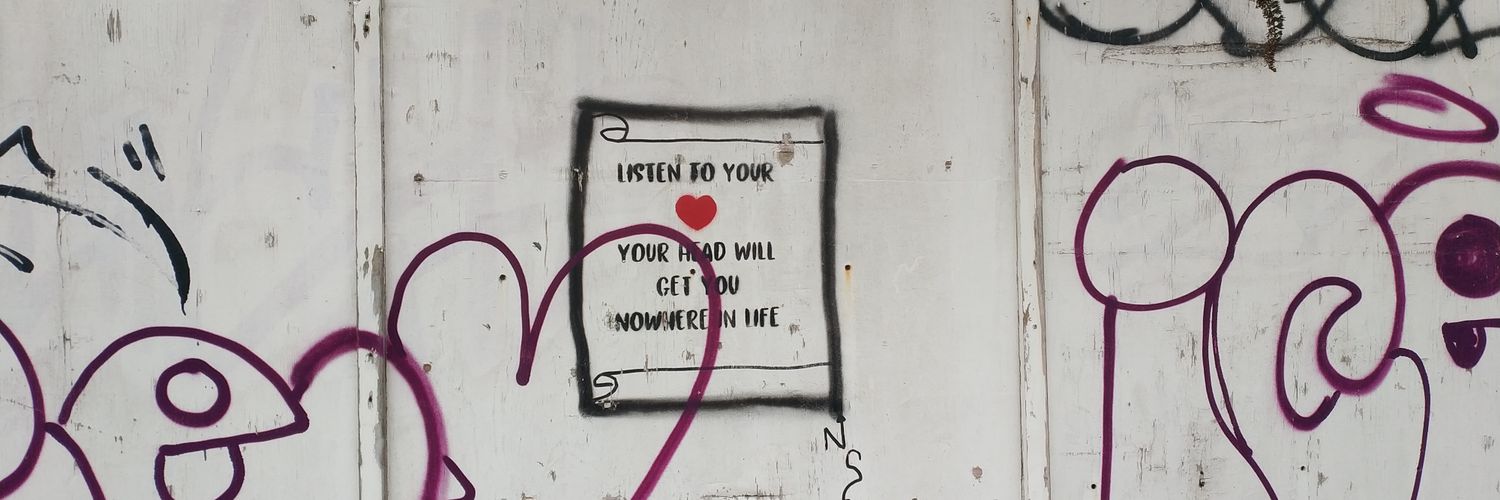 LISTEN TO YOUR
❤
YOUR HEAD WILL
GET YOU
NOWHERE IN LIFE
N
S